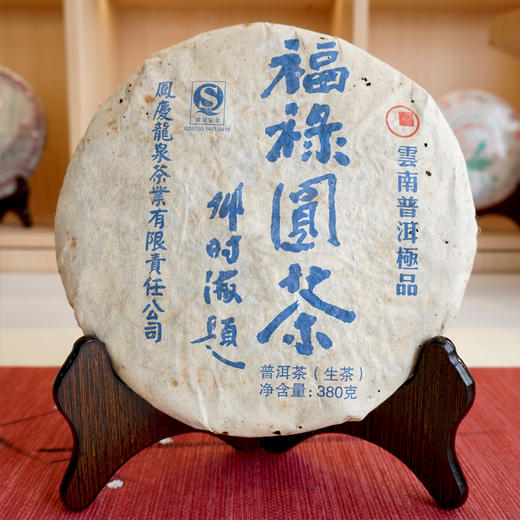 雲南普洱極品
福祿圓茶
普洱茶（生茶）
净含量:380克
鄧时海題
质量安全
鳳慶龍泉茶業有限責任公司